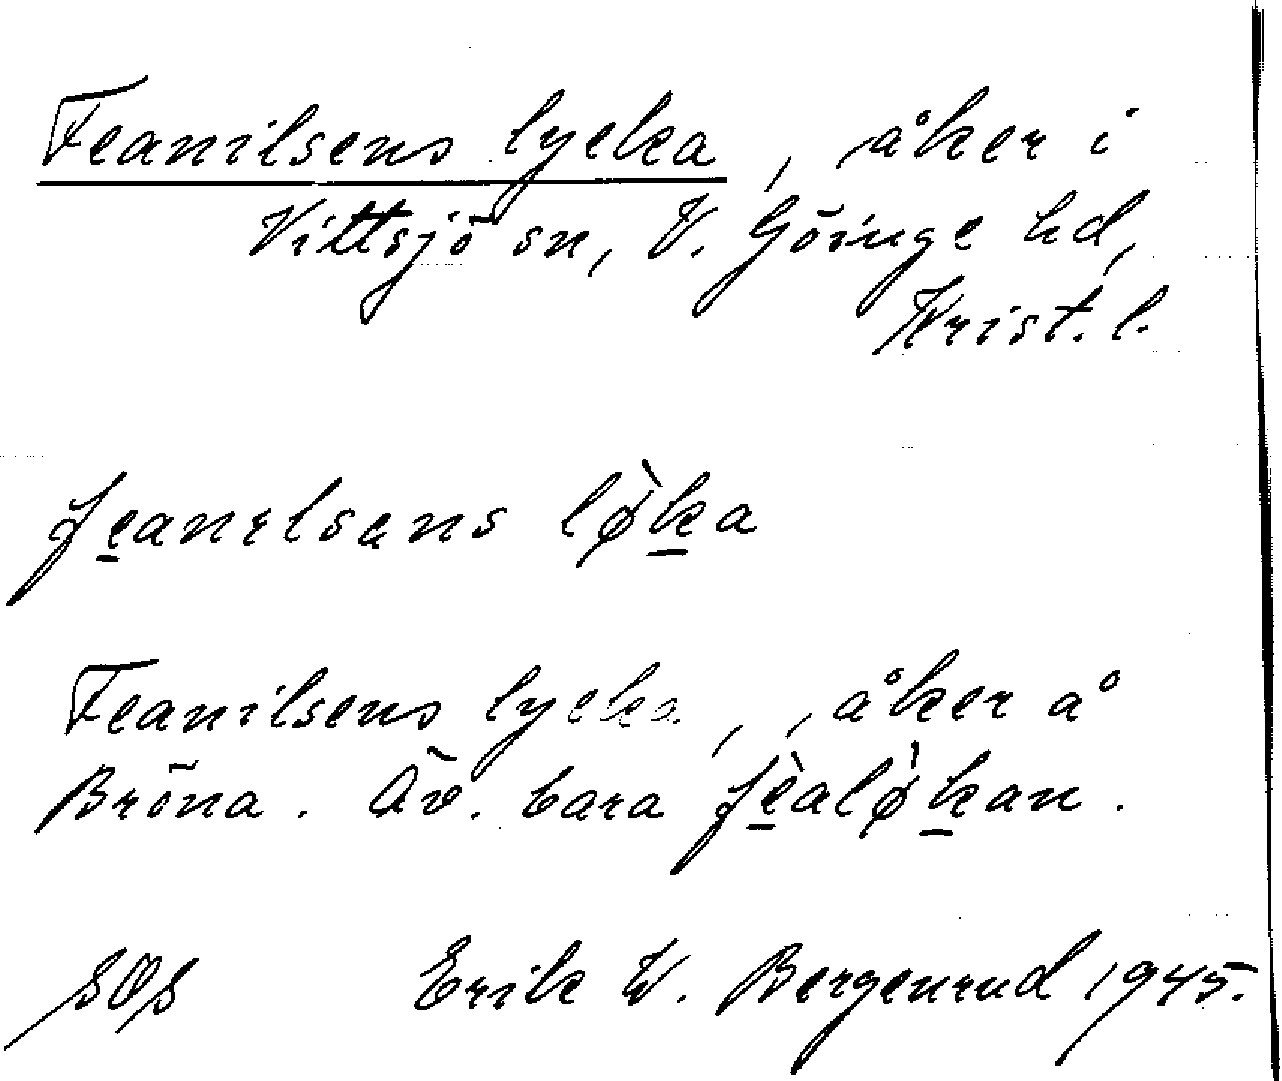 Feanilsens lycka, åker i
Vittsjö sn, V. Göinge hd,
Krist. l.
fe̲anɪlsəns lø̀k̲a
Feanilsens lycka, åker å
Bröna. Äv. bara fè̲alø̀k̲an.
SOS Erik W. Bergenrud 1945.